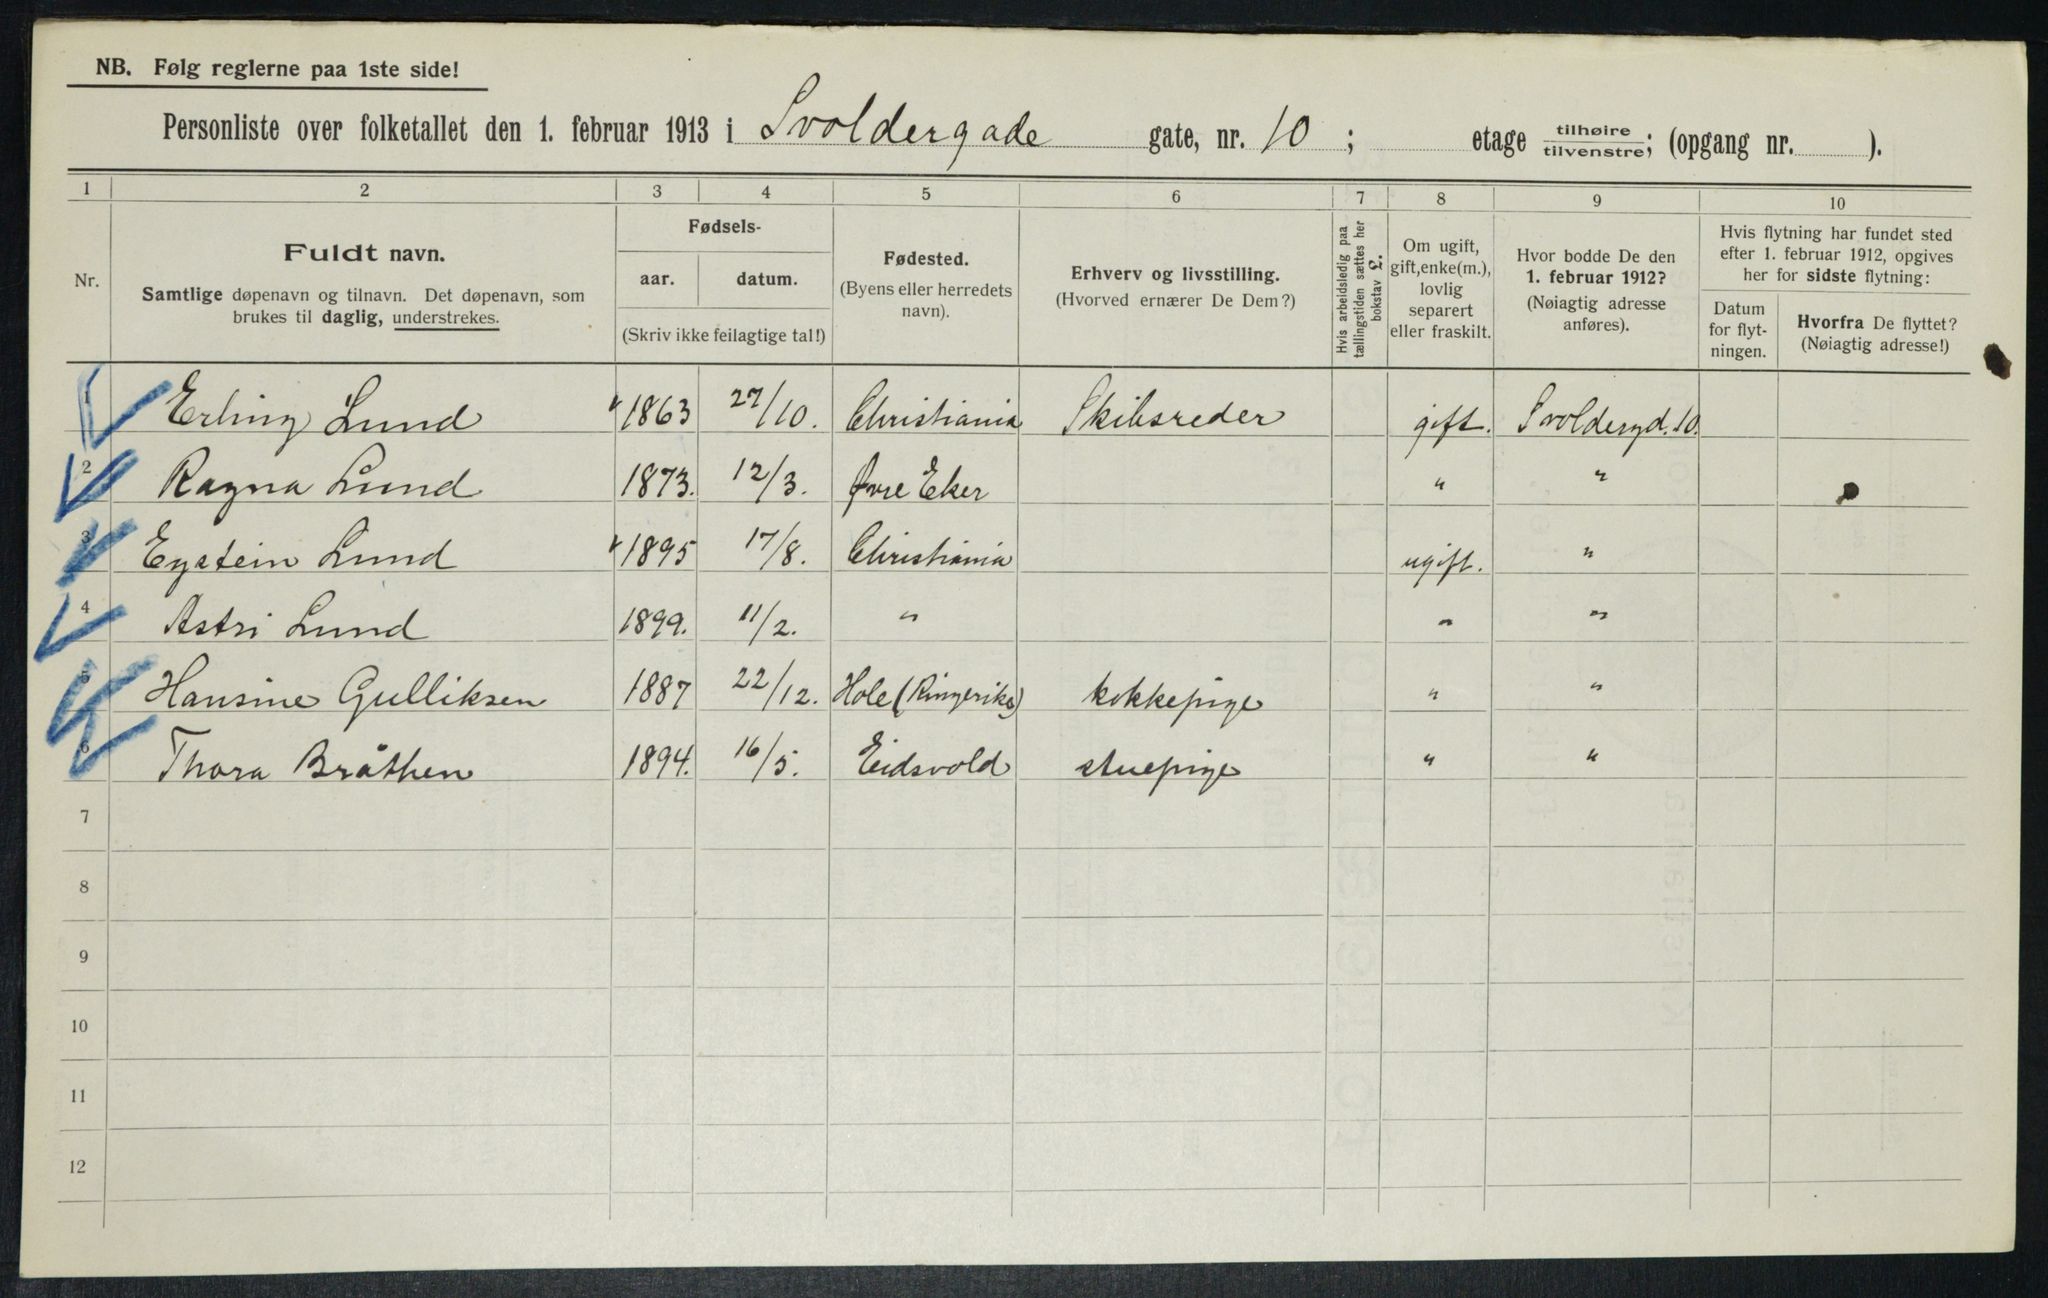 NB. Følg reglerne paa 1ste side!
Personliste over folketallet den 1. februar 1913 i Svoldergade gate, nr. 10 ; etage tilhøire/tilvenstre; (opgang nr. ).
1 2 3 4 5 6 7 8 9 10
Nr.
Fuldt navn.
Samtlige døpenavn og tilnavn. Det døpenavn, som
brukes til daglig, understrekes.
Fødsels-
aar. datum.
(Skriv ikke feilagtige tal!)
Fødested.
(Byens eller herredets
navn).
Erhverv og livsstilling.
(Hvorved ernærer De Dem?)
Hvis arbeidsledig paa
tællingstiden sættes her
bokstav L.
Om ugift,
gift, enke(m.),
lovlig
separert
eller fraskilt.
Hvor bodde De den
1. februar 1912?
(Nøiagtig adresse
anføres).
Hvis flytning har fundet sted
efter 1. februar 1912, opgives
her for sidste flytning:
Datum
for flyt-
ningen.
Hvorfra De flyttet?
(Nøiagtig adresse!)
1 Erling Lund 1863 27/10. Christiania Skibsreder gift. Svoldergd. 10.
2 Ragna Lund 1873. 12/3. Øvre Eker " "
3 Eystein Lund 1895 17/8. Christiania ugift. "
4 Astri Lund 1899. 11/2. " " "
5 Hansine Gulliksen 1887 22/12. Hole (Ringerike) kokkepige " "
6 Thora Bråthen 1894. 16/5. Eidsvold stuepige " "
7
8
9
10
11
12